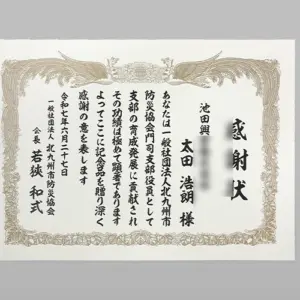 感謝状
池田興
太田 浩朗 様
あなたは一般社団法人北九州市
防災協会門司支部役員として
支部の育成発展に貢献され
その功績は極めて顕著であります
よってここに記念品を贈り深く
感謝の意を表します
令和七年六月二十七日
一般社団法人 北九州市防災協会
会長 若狹 和式